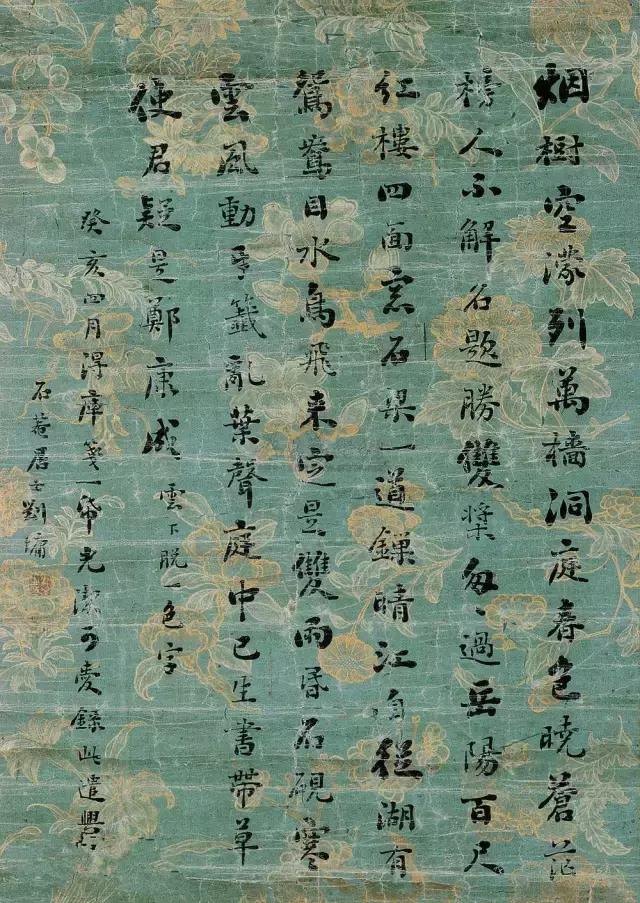 烟樹空濛列萬檣洞庭春色曉蒼茫
榜人不解名題勝雙槳匆々過岳陽百尺
紅樓四面窓石梁一道鏁晴江自從湖有
鴛鴦目水鳥飛来定是雙雨昏石硯寒
雲風動牙籤亂葉聲庭中已生書帶草
使君疑是鄭康成 雲下脱一色字
癸亥四月得庫箋一帋光潔可愛錄此遣興
石菴居士劉墉